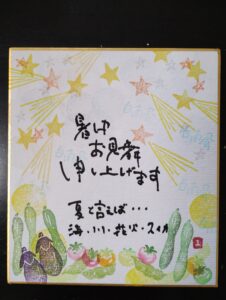 暑中
お見舞
申し上げます
夏と言えば・・・
海・川・花火・スイカ